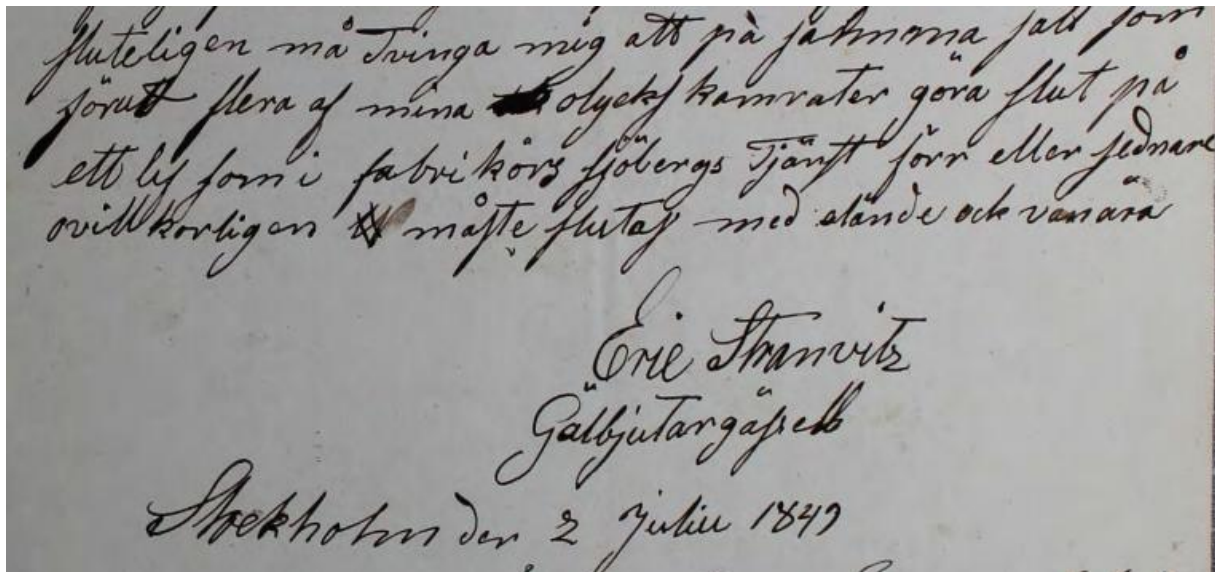 sluteligen må Tvinga mig att på samma sätt som
förut flera af mina olycks kamrater göra slut på
ett lif som i fabrikörs sjöbergs Tjänst förr eller sednare
ovillkorligen måste slutas med elände och vanära
Eric Stranvitz
Gälbjutargäsell
Stockholm den 2 Julii 1849